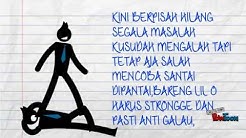 KINI BERPISAH HILANG
SEGALA MASALAH
KUSUDAH MENGALAH TAPI
TETAP AJA SALAH
MENCOBA SANTAI
DIPANTAI,BARENG LIL O
HARUS STRONGGE DAN
PASTI ANTI GALAU,